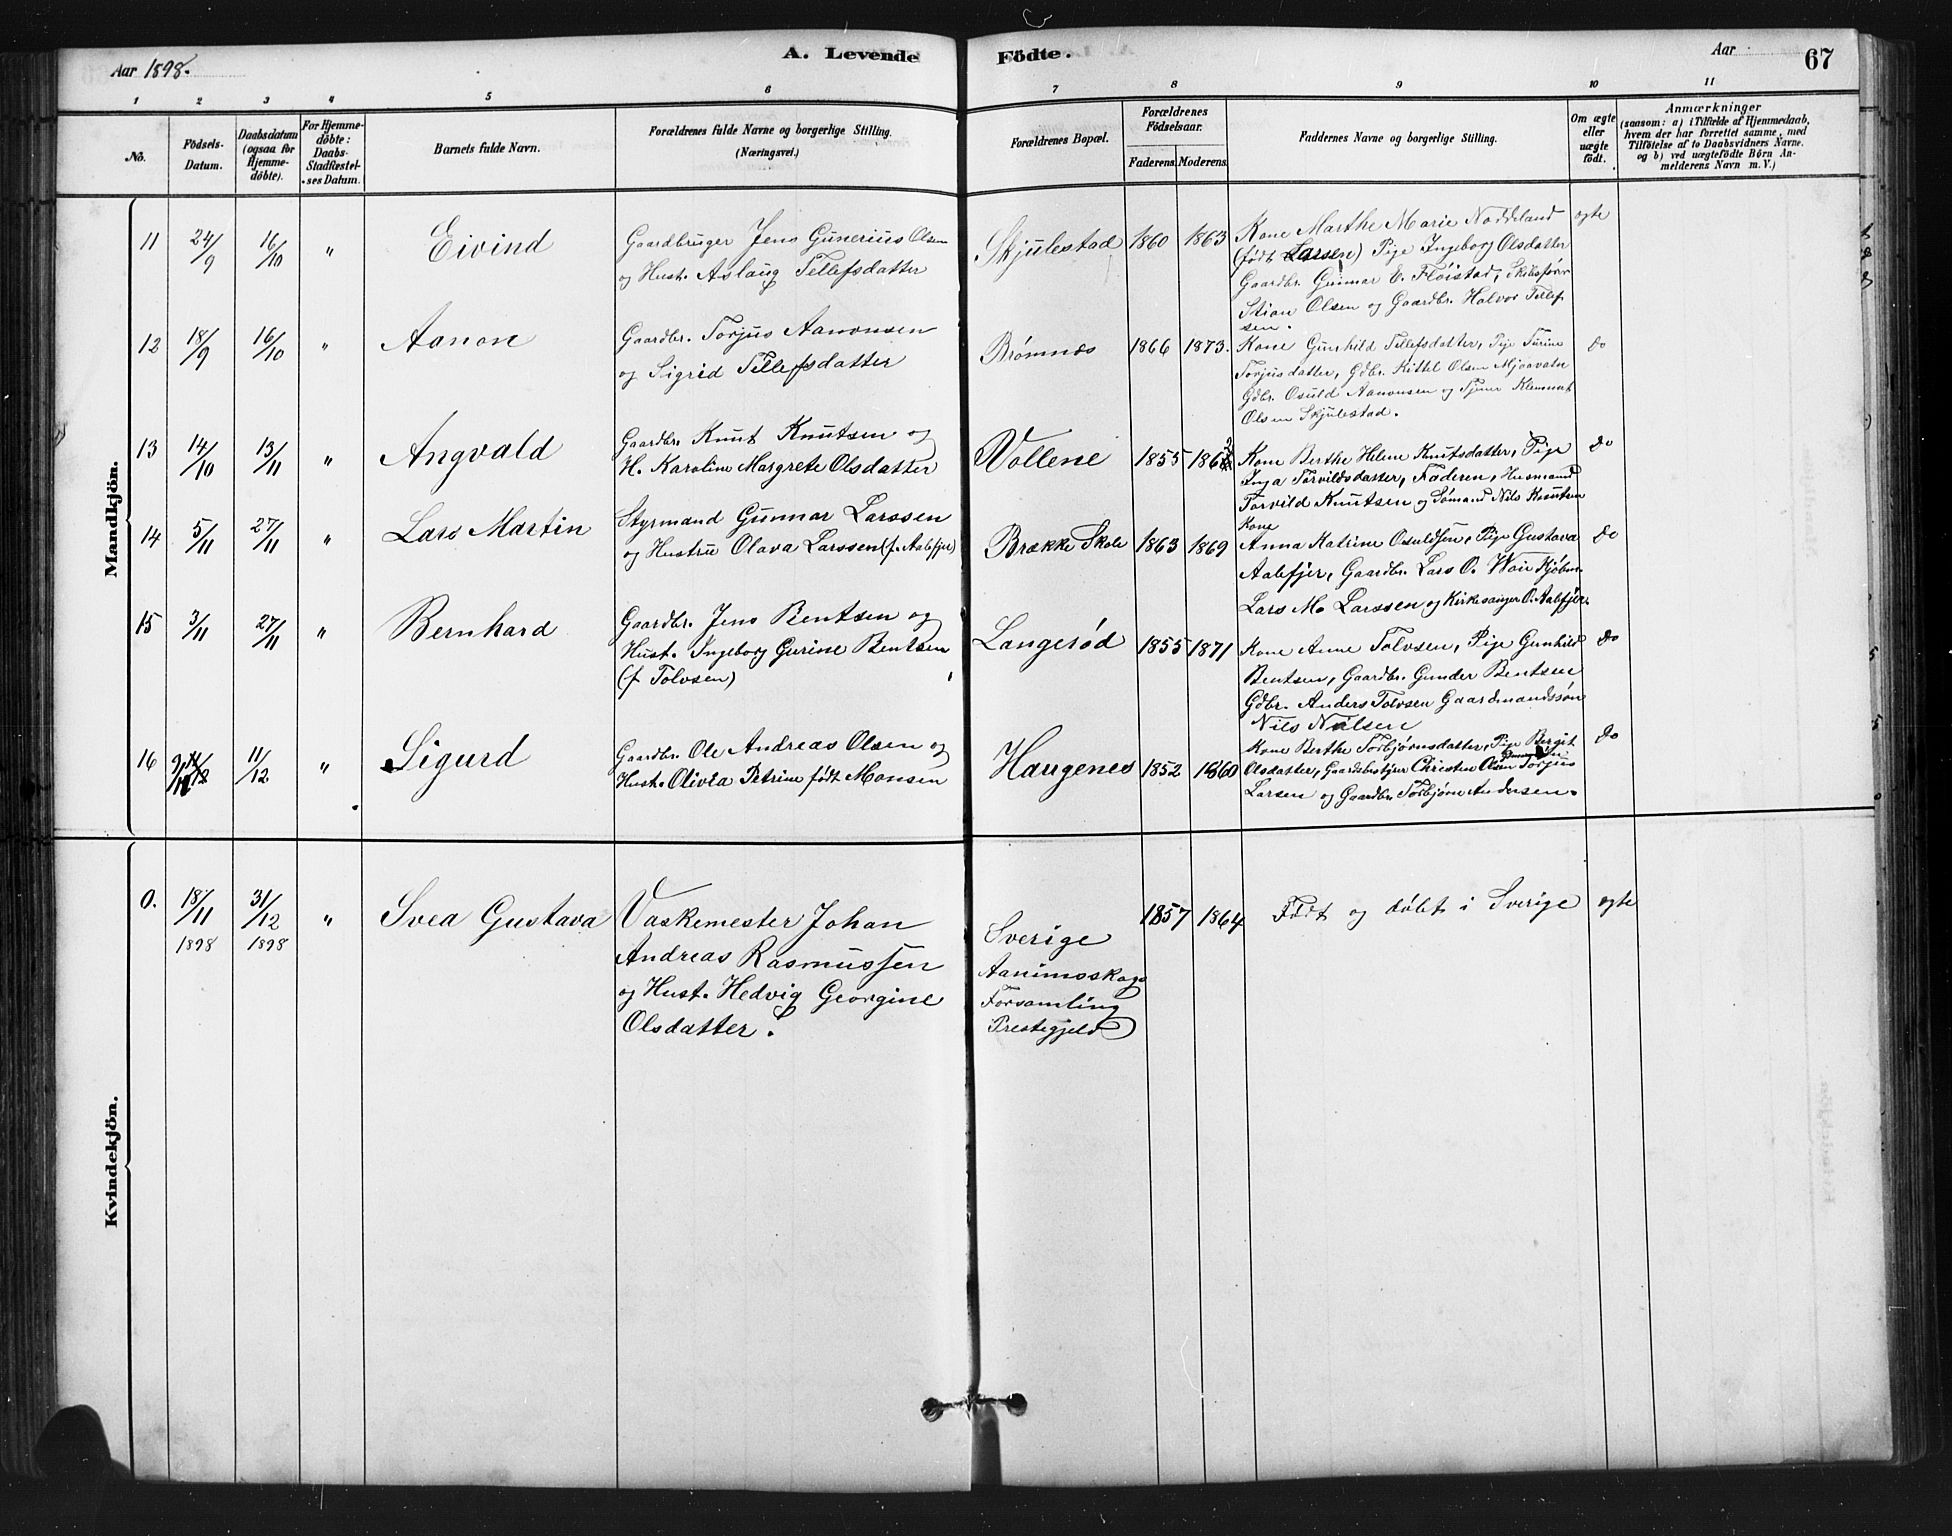 Aar 1898.
A. Levende Födte.
Aar
67
1 2 3 4 5 6 7 8 9 10 11
No.
Födsels-Datum.
Daabsdatum (ogsaa for Hjemme-döbte).
For Hjemme-döbte: Daabs-Stadfæstel-ses Datum.
Barnets fulde Navn.
Forældrenes fulde Navne og borgerlige Stilling.
(Næringsvei.)
Forældrenes Bopæl.
Forældrenes Födselsaar.
Faderens. Moderens.
Faddernes Navne og borgerlige Stilling.
Om ægte eller uægte födt.
Anmærkninger
(saasom: a) i Tilfælde af Hjemmedaab,
hvem der har forrettet samme, med
Tilföielse af to Daabsvidners Navne.
og b) ved uægtefödte Börn An-
melderens Navn m. V.)
Mandkjön.
11 24/9 16/10 " Eivind
Gaardbruger Jens Gunerius Olsen
og Hust. Aslaug Tellefsdatter
Skjulestad 1860 1863
Kone Marthe Marie Noddeland
(født Larsen) Pige Ingeborg Olsdatter
Gaardbr. Gunnar E. Fløistad, Skibsfører
Stian Olsen og Gaardbr. Halvor Tellef
sen.
ægte
12 18/9 16/10 " Aanon
Gaardbr. Torjus Aanonsen
og Sigrid Tellefsdatter
Brømnes 1866 1873.
Kone Gunhild Tellefsdatter, Pige Turine
Torjusdatter, Gdbr. Kittel Olsen Mjaavatn
Gdbr. Osuld Aanonsen og Tjener Klemmet
Olsen Skjulestad.
do
13 14/10 13/11 " Angvald
Gaardbr. Knut Knutsen og
H. Karoline Margrete Olsdatter
Vollene 1855 1862
Kone Berthe Helene Knutsdatter, Pige
Inga Torvildsdatter, Faderen, Husmand
Torvild Knutsen og Sømand Nils Knutsen
do
14 5/11 27/11 " Lars Martin
Styrmand Gunnar Larssen
og Hustru Olava Larssen (f. Aalefjer)
Brække Skole 1863 1869
Kone
Anna Katrine Osuldsen, Pige Gustava
Aalefjer, Gaardbr. Lars O. Kjøbm.
Lars M. Larssen og Kirkesanger O. Aalefjer.
do
15 3/11 27/11 " Bernhard
Gaardbr. Jens Bentsen og
Hust. Ingeborg Gurine Bentsen
(f Tolvsen)
Langerød 1855 1871
Kone Anne Tolvsen, Pige Gunhild
Bentsen, Gaardbr. Gunder Bentsen
Gdbr. Anders Tolvsen Gaardmandssøn
Nils Nilsen
do
16 9/12 11/12 " Sigurd
Gaardbr. Ole Andreas Olsen og
Hust. Olivia Petrine født Monsen
Haugenes 1852 1860
Kone Berthe Torbjørnsdatter, Pige Bergit
Olsdatter, Gaardsbestyrer Christen Olsen Torjus
Larsen og Gaardbr. Torbjørn Andersen.
do
Kvindekjön.
0. 18/11 1898 31/12 1898 " Svea Gustava
Vaskemester Johan
Andreas Rasmussen
og Hust. Hedvig Georgine
Olsdatter.
Sverige
Aanimskogs
Forsamling
Prestegjeld
1857 1864
Født og døbt i Sverige
ægte